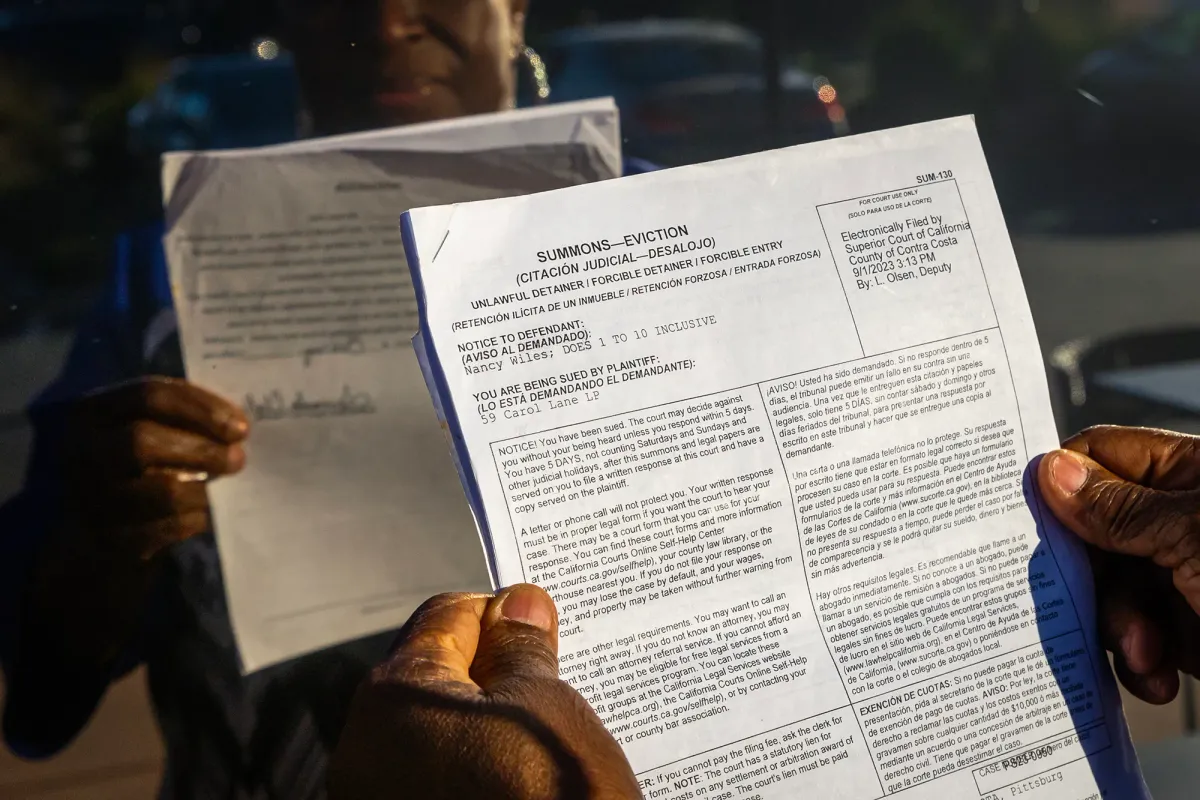 SUM-130
SUMMONS—EVICTION
(CITACIÓN JUDICIAL—DESALOJO)
UNLAWFUL DETAINER / FORCIBLE DETAINER / FORCIBLE ENTRY
(RETENCIÓN ILÍCITA DE UN INMUEBLE / RETENCIÓN FORZOSA / ENTRADA FORZOSA)
FOR COURT USE ONLY
(SOLO PARA USO DE LA CORTE)
Electronically Filed by
Superior Court of California
County of Contra Costa
9/1/2023 3:13 PM
By: L. Olsen, Deputy
NOTICE TO DEFENDANT:
(AVISO AL DEMANDADO):
Nancy Wiles; DOES 1 TO 10 INCLUSIVE
YOU ARE BEING SUED BY PLAINTIFF:
(LO ESTÁ DEMANDANDO EL DEMANDANTE):
59 Carol Lane LP
NOTICE! You have been sued. The court may decide against
you without your being heard unless you respond within 5 days.
You have 5 DAYS, not counting Saturdays and Sundays and
other judicial holidays, after this summons and legal papers are
served on you to file a written response at this court and have a
copy served on the plaintiff.
A letter or phone call will not protect you. Your written response
must be in proper legal form if you want the court to hear your
case. There may be a court form that you can use for your
response. You can find these forms and more information
at the California Courts Online Self-Help Center
www.courts.ca.gov/selfhelp), your county law library, or the
rthouse nearest you. If you do not file your response on
, you may lose the case by default, and your wages,
ey, and property may be taken without further warning from
court.
ere are other legal requirements. You may want to call an
torney right away. If you do not know an attorney, you may
nt to call an attorney referral service. If you cannot afford an
rney, you may be eligible for free legal services from a
ofit legal services program. You can locate these
rofit groups at the California Legal Services website
awhelpca.org), the California Courts Online Self-Help
www.courts.ca.gov/selfhelp), or by contacting your
rt or county bar association.
ER: If you cannot pay the filing fee, ask the clerk for
form. NOTE: The court has a statutory lien for
costs on any settlement or arbitration award of
il case. The court's lien must be paid
case.
¡AVISO! Usted ha sido demandado. Si no responde dentro de 5
días, el tribunal puede emitir un fallo en su contra sin una
audiencia. Una vez que le entreguen esta citación y papeles
legales, solo tiene 5 DÍAS, sin contar sábado y domingo y otros
días feriados del tribunal, para presentar una respuesta por
escrito en este tribunal y hacer que se entregue una copia al
demandante.
Una carta o una llamada telefónica no lo protege. Su respuesta
por escrito tiene que estar en formato legal correcto si desea que
procesen su caso en la corte. Es posible que haya un formulario
que usted pueda usar para su respuesta. Puede encontrar estos
formularios de la corte y más información en el Centro de Ayuda
de las Cortes de California (www.sucorte.ca.gov), en la biblioteca
de leyes de su condado o en la corte que le quede más cerca. Si
no presenta su respuesta a tiempo, puede perder el caso por fal
de comparecencia y se le podrá quitar su sueldo, dinero y biene
sin más advertencia.
Hay otros requisitos legales. Es recomendable que llame a un
abogado inmediatamente. Si no conoce a un abogado, puede
llamar a un servicio de remisión a abogados. Si no puede pagar a
un abogado, es posible que cumpla con los requisitos para
obtener servicios legales gratuitos de un programa de servicios
legales sin fines de lucro. Puede encontrar estos grupos sin fines
de lucro en el sitio web de California Legal Services,
(www.lawhelpcalifornia.org), en el Centro de Ayuda de las Cortes
de California, (www.sucorte.ca.gov) o poniéndose en contacto
con la corte o el colegio de abogados local.
EXENCIÓN DE CUOTAS: Si no puede pagar la cuota de
presentación, pida al secretario de la corte que le dé un formulario
de exención de pago de cuotas. AVISO: Por ley, la corte tiene
derecho a reclamar las cuotas y los costos exentos con un
gravamen sobre cualquier cantidad de $10,000 ó más
mediante un acuerdo o una concesión de arbitraje en un caso de
derecho civil. Tiene que pagar el gravamen de la corte antes de
que la corte pueda desestimar el caso.
CASE
PS23-0960
Pittsburg